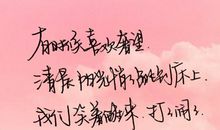 有时候喜欢奢望
清晨阳光悄悄贴到床上
我们笑着醒来 打打闹闹